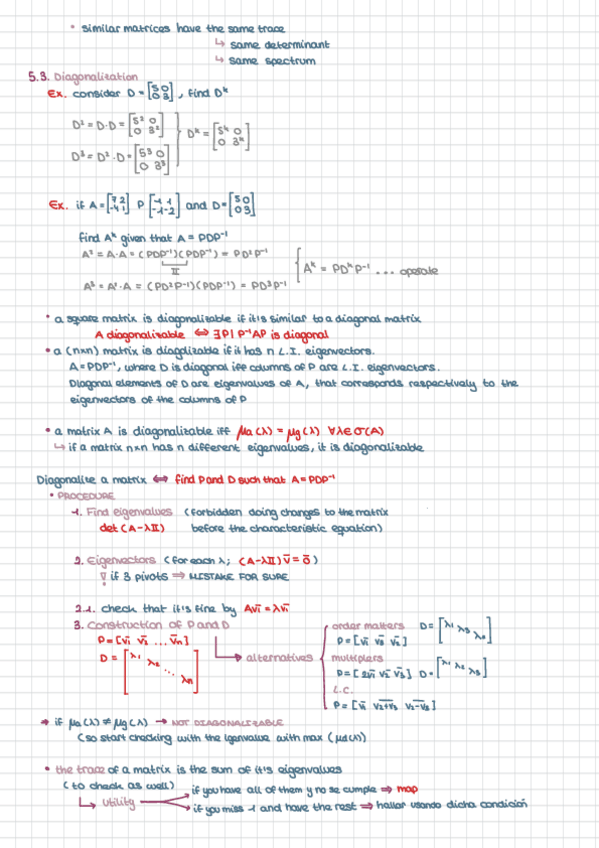 • similar matrices have the same trace
↳ same determinant
↳ same spectrum
5.3. Diagonalization
Ex. consider D = [5 0; 0 3], find Dᵏ
D² = D·D = [5² 0; 0 3²]
D³ = D²·D = [5³ 0; 0 3³]
Dᵏ = [5ᵏ 0; 0 3ᵏ]
Ex. if A = [7 2; -4 1] P [-1 1; -1 -2] and D = [5 0; 0 3]
find Aᵏ given that A = PDP⁻¹
A² = A·A = (PDP⁻¹)(PDP⁻¹) = PD²P⁻¹
II
A³ = A²·A = (PD²P⁻¹)(PDP⁻¹) = PD³P⁻¹
Aᵏ = PDᵏP⁻¹ ... operate
• a square matrix is diagonalizable if it's similar to a diagonal matrix
A diagonalizable ⇔ ∃P | P⁻¹AP is diagonal
• a (n×n) matrix is diagdlizable if it has n L.I. eigenvectors.
A = PDP⁻¹, where D is diagonal iff columns of P are L.I. eigenvectors.
Diagonal elements of D are eigenvalues of A, that corresponds respectively to the
eigenvectors of the columns of P
• a matrix A is diagonalizable iff μa(λ) = μg(λ) ∀λ∈σ(A)
↳ if a matrix n×n has n different eigenvalues, it is diagonalizable
Diagonalize a matrix ⇔ find P and D such that A = PDP⁻¹
• PROCEDURE
1. Find eigenvalues (forbidden doing changes to the matrix
det(A-λII) before the characteristic equation)
2. Eigenvectors (for each λ; (A-λII)v̄ = ō)
! if 3 pivots ⇒ MISTAKE FOR SURE
2.1. check that it's fine by Av̄i = λv̄i
3. Construction of P and D
P = [v̄1 v̄2 ... v̄n]
D = [λ1 λ2 ... λn]
→ alternatives
order matters D = [λ1 λ3 λ2]
P = [v̄1 v̄3 v̄2]
multipliers
P = [2v̄1 v̄2 v̄3] D = [λ1 λ2 λ3]
L.C.
P = [v̄1 v̄2+v̄3 v̄2-v̄3]
→ if μa(λ) ≠ μg(λ) → NOT DIAGONALIZABLE
(so start checking with the igenvalue with max (μa(λ))
• the trace of a matrix is the sum of it's eigenvalues
(to check as well)
↳ Utility
if you have all of them y no se cumple ⇒ map
if you miss 1 and have the rest ⇒ hallar usando dicha condición